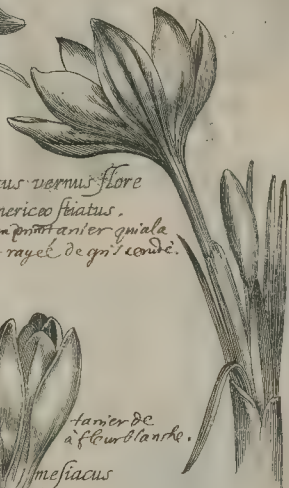 cus vernus flore
nericeo striatus.
printanier qui a la
rayée de gris cendré.
tanier de
à fleur blanche.
mesiacus